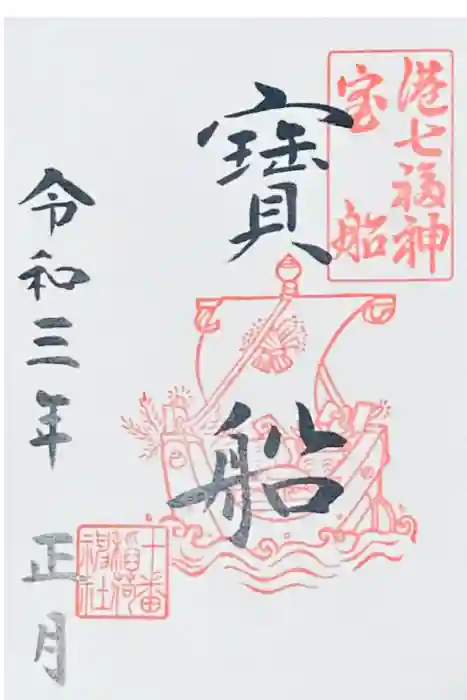 港七福神
宝船
寳船
令和三年 正月
十番
稲荷
神社